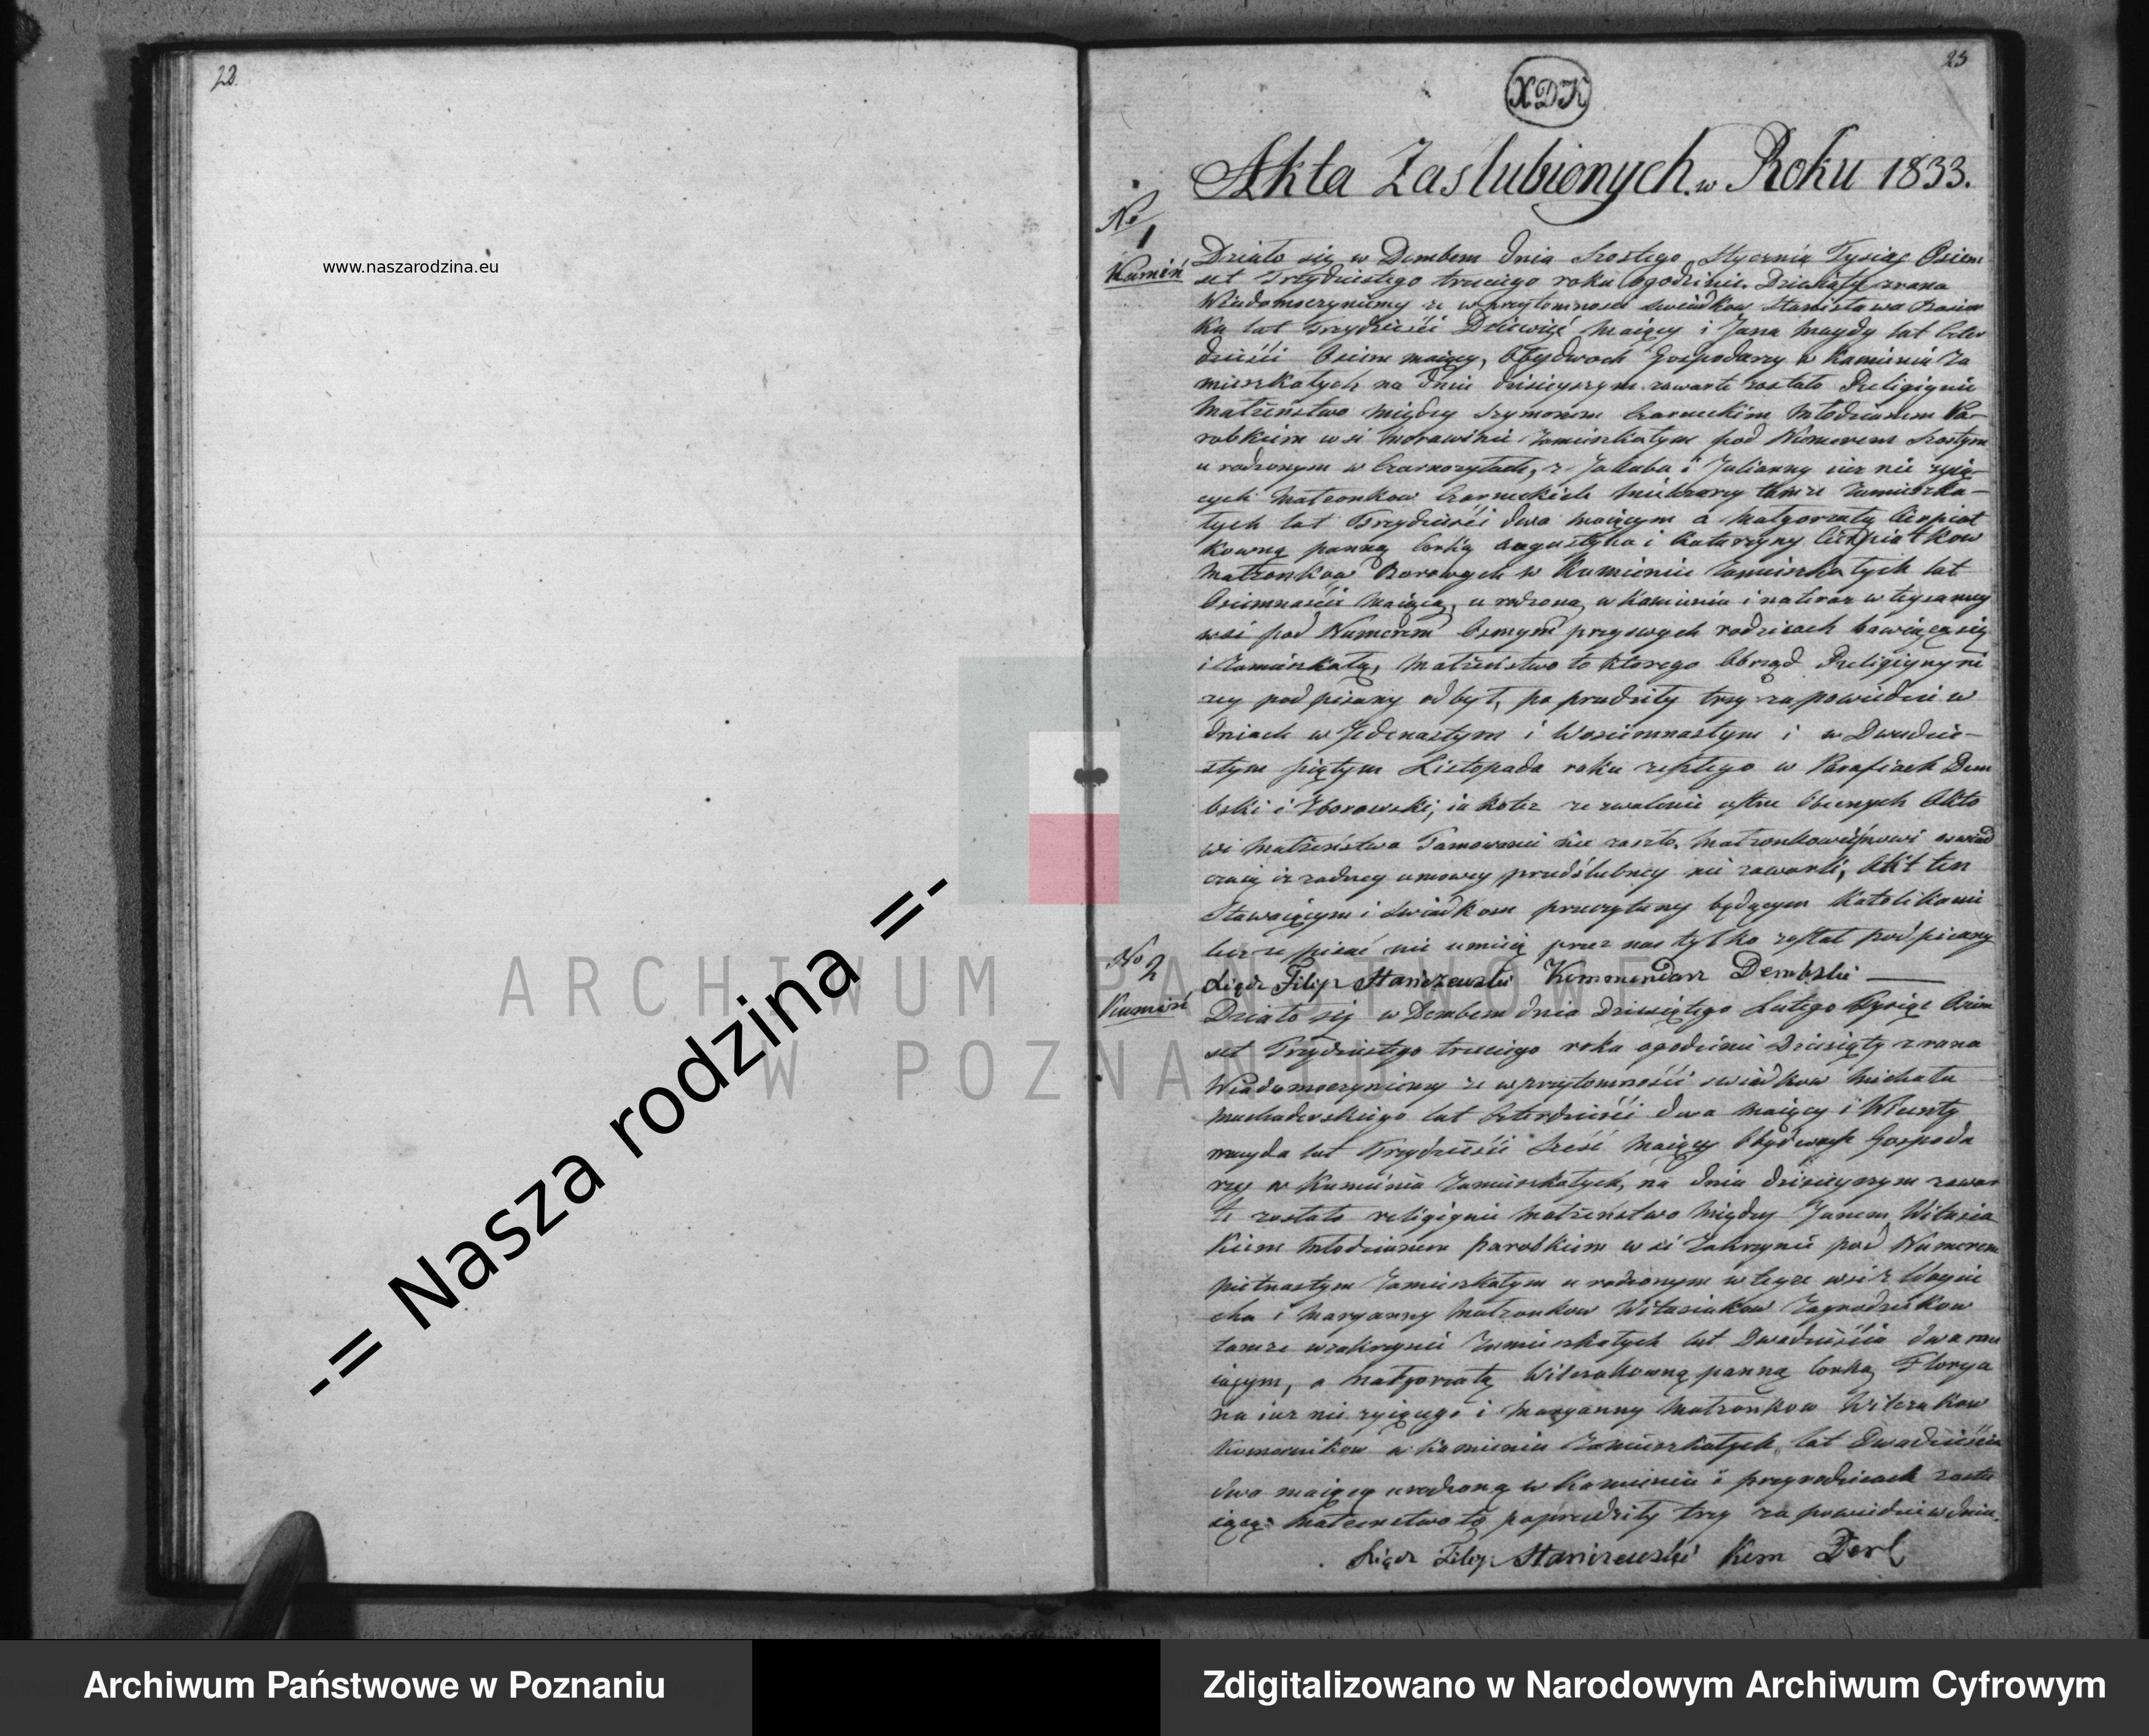 22.
23
XDK
Akta Zaslubionych w Roku 1833.
No 1
Kamień
Działo się w Dembem dnia Szostego Stycznia Tysiąc Osiem
set Trzydziestego trzeciego roku o godzinie Dziesiąty zrana
Wiadomoczyniemy ze w przytomnosci swiadkow Stanisława
ka lat Trzydzieści Dziewięć maiący i Jana Maydy lat Czter
dzieści Osiem maiący, Obydwoch Gospodarzy w Kamieniu Za
mieszkałych na dniu dzisieyszym zawarte zostało Religiynie
Małżeństwo między Szymonem Czarneckim Młodzianem Pa-
robkiem wsi Morawinie Zamieszkałym pod Numerem Szostym
urodzonym w Czarnozyłach, z Jakuba i Julianny iuz nie zyią-
cych Małzonkow Czarneckich tamze Zamieszka-
łych lat Trzydzieści dwa maiącym a Małgorzatą Cierpiat
kowną panną Corką Augustyna i Katarzyny Cierpiatkow
Małzonkow Borowych w Kamieniu Zamieszkałych lat
Osiemnaście maiącą, urodzoną w Kamieniu i nateraz w teysamey
wsi pod Numerem Osmym przyswych rodzicach bawiącą się
i Zamieszkałą, Małżeństwo to ktorego Obrząd Religiyny ni
zey podpisany odbył, poprzedziły trzy zapowiedzi w
dniach w Jedenastym i Wosiemnastym i w Dwudzie-
stym piątym Listopada roku zeszłego w Parafiach Dem
bski i Zborowski; iakotez zezwolenie ustne Obecnych Akto
wi Małżeństwa Tamowanie nie zaszło. Małzonkowie nowi oswiad
czaią iz zadney umowy przedślubney nie zawarli, Akt ten
Stawaiącym i Swiadkom przeczytany będącym Katolikami
lecz ze pisać nie umieią przez nas tylko został podpisany
Xiądz Filip Staniszewski Kommendarz Dembski
No 2
Kamień
Działo się w Dembem dnia dziesiątego Lutego Tysiąc Osiem
set Trzydziestego trzeciego roku o godzinie Dziesiąty zrana
Wiadomoczyniemy ze w przytomności swiadkow Michała
lat Czterdzieści dwa maiący i Wincenty
Mayda lat Trzydzieści Sześć maiący Obydwoch Gospoda
rzy w Kamieniu Zamieszkałych, na dniu dzisieyszym zawar
te zostało religiynie Małżeństwo między Janem Witasia
kiem Młodzianem Parobkiem wsi Zakrzynie pod Numerem
pietnastym Zamieszkałym urodzonym w teyze wsi z Woycie
cha i Maryanny Małzonkow Witasiakow Zagrodnikow
tamze w Zakrzynie Zamieszkałych lat Dwadzieścia dwa ma
iącym, a Małgorzatą Witczakowną panną Corką Florya
na iuz nie zyiącego i Maryanny Małzonkow Witczakow
Komornikow w Kamieniu Zamieszkałych lat Dwadzieścia
dwa maiącą urodzoną w Kamieniu i przyrodzicach zosta
iącą. Małzenstwo to poprzedziły trzy zapowiedzi w dniu
Xiądz Filip Staniszewski Kom Dem
www.naszarodzina.eu
-= Nasza rodzina =-
ARCHIWUM PAŃSTWOWE
W POZNANIU
Archiwum Państwowe w Poznaniu
Zdigitalizowano w Narodowym Archiwum Cyfrowym